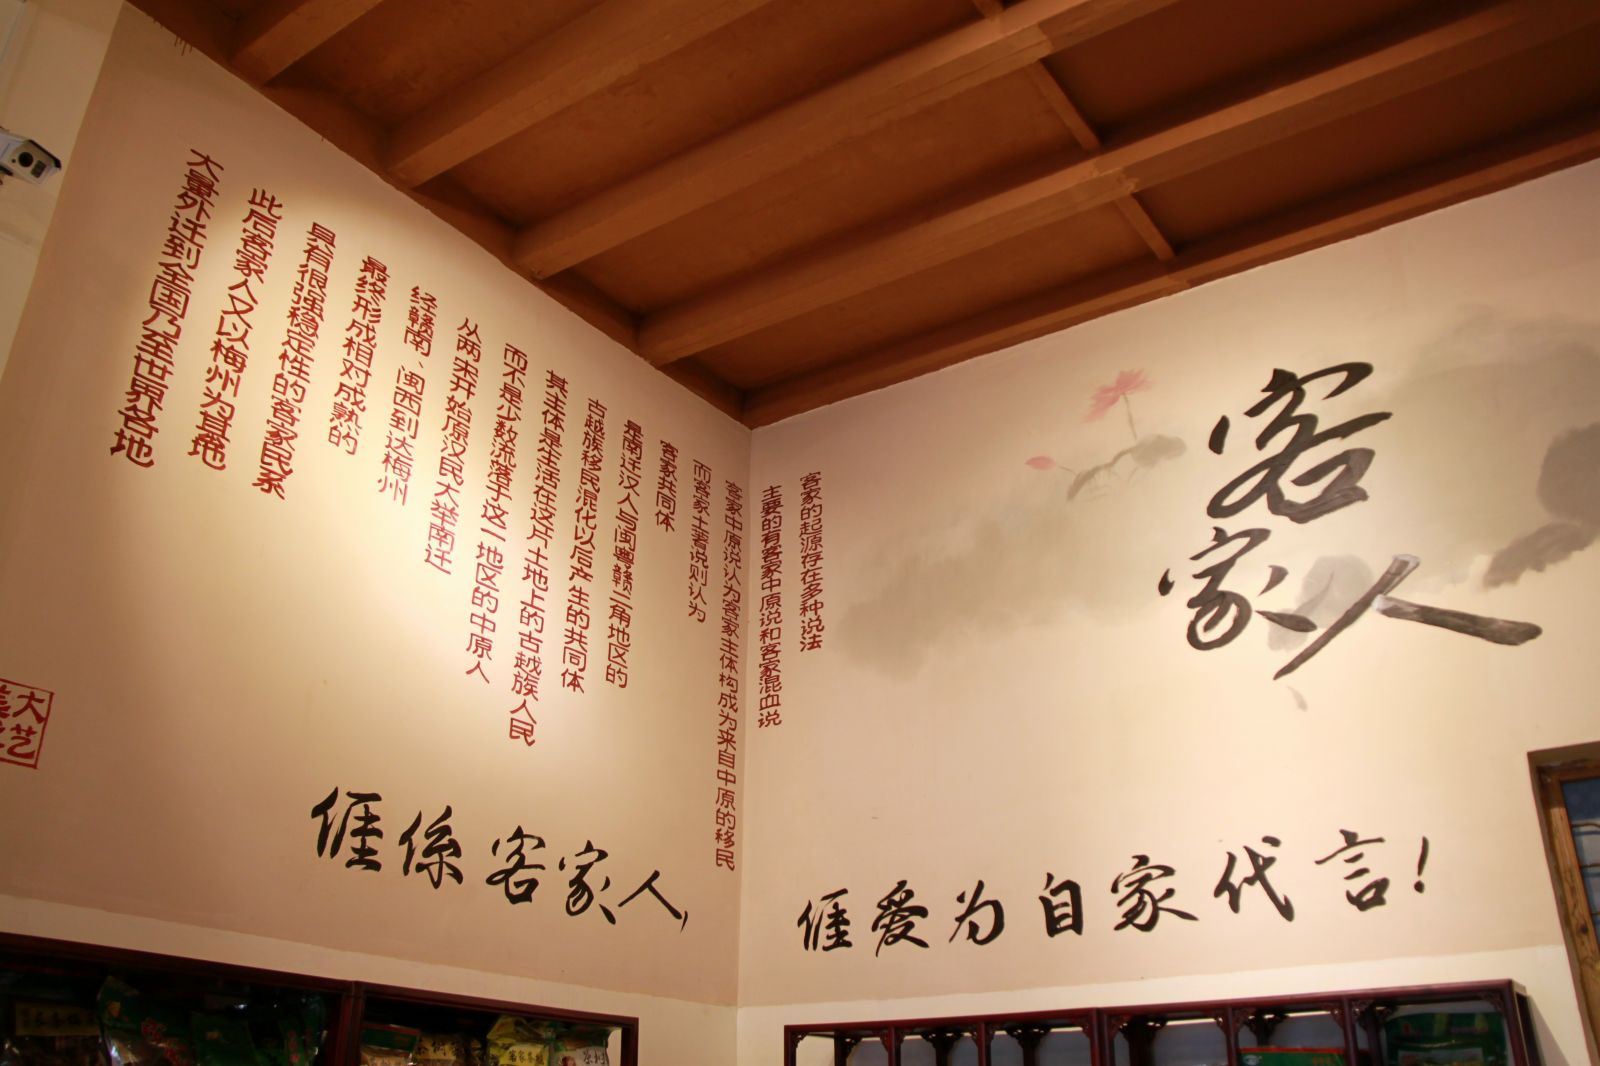 客家人
客家的起源存在多种说法
主要的有客家中原说和客家混血说
客家中原说认为客家主体构成为来自中原的移民
而客家土著说则认为
客家共同体
是南迁汉人与闽粤赣三角地区的
古越族移民混化以后产生的共同体
其主体是生活在这片土地上的古越族人民
而不是少数流落于这一地区的中原人
从两宋开始原汉民大举南迁
经赣南、闽西到达梅州
最终形成相对成熟的
具有很强稳定性的客家民系
此后客家人又以梅州为基地
大量外迁到全国乃至世界各地
大艺
𠊎係客家人,
𠊎爱为自家代言!